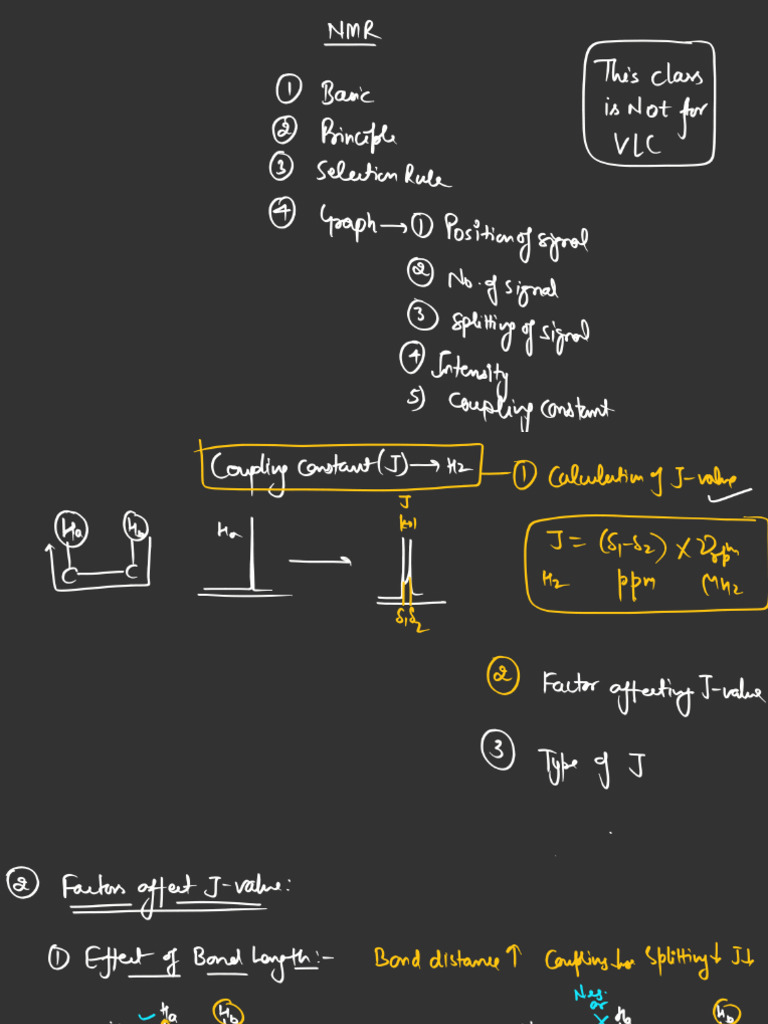 NMR
This class
is Not for
VLC
① Basic
② Principle
③ Selection Rule
④ Graph → ① Position of signal
② No. of signal
③ Splitting of signal
④ Intensity
5) Coupling constant
Coupling constant (J) → Hz
① Calculation of J-value
J
Ha Hb
C C
Ha
δ₁ δ₂
J = (δ₁-δ₂) ×
Hz ppm MHz
② Factor affecting J-value
③ Type of J
② Factors affect J-value:
① Effect of Bond Length:- Bond distance ↑ Coupling ↓ or Splitting ↓ J↓
Ha Hb
Neg. or
× Ha Hb